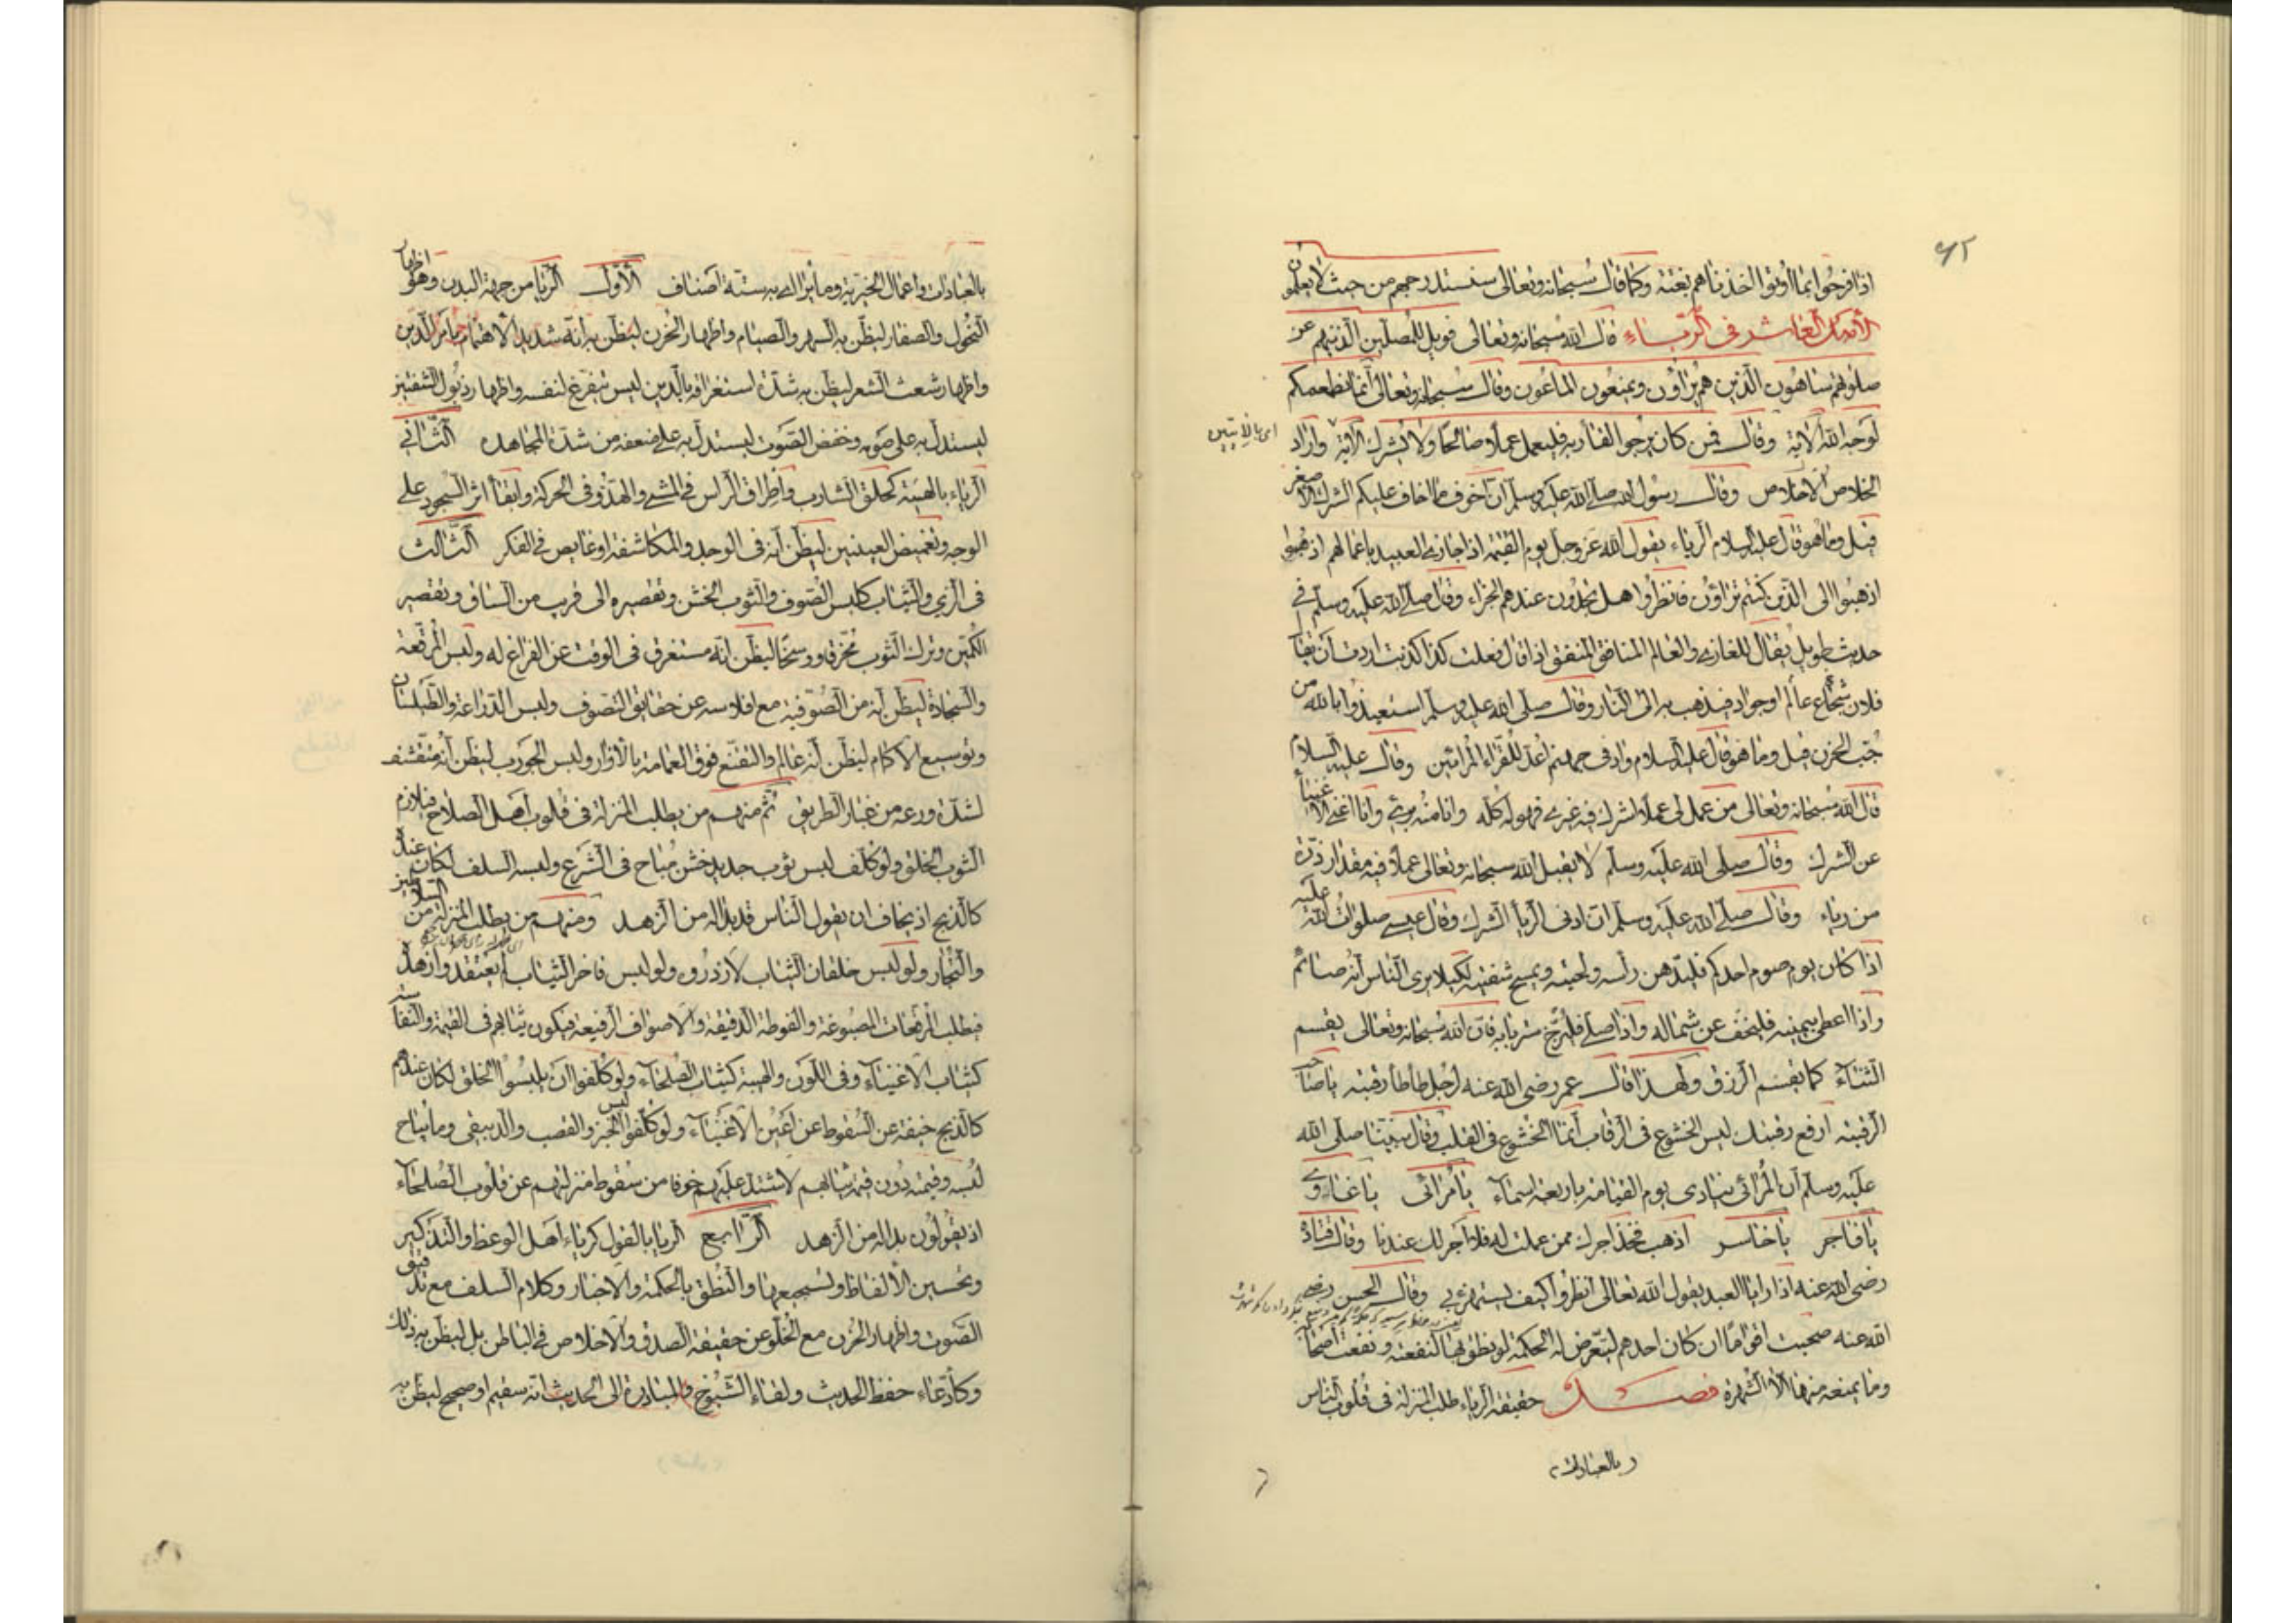 اذا فرحوا بما اوتوا اخذناهم بغتة وكما قال سبحانه وتعالى سنستدرجهم من حيث لا يعلمون
الأصل العاشر في الرياء قال الله سبحانه وتعالى فويل للمصلين الذينهم عن
صلوتهم ساهون الذين هم يراؤن ويمنعون الماعون وقال سبحانه وتعالى انما نطعمكم
لوجه الله الاية وقال فمن كان يرجوا لقاء ربه فليعمل عملا صالحا ولا يشرك الآية واراد
اى بالايتين
اخلاص الاخلاص وقال رسول الله صلى الله عليه وسلم ان اخوف ما اخاف عليكم الشرك الاصغر
قيل وما هو قال عليه السلام الرياء يقول الله عز وجل يوم القيمة اذا جازى العبيد باعمالهم اذهبوا
اذهبوا الى الذين كنتم تراؤن فانظروا هل تجدون عندهم الجزاء وقال صلى الله عليه وسلم في
حديث طويل يقال للغازى والعالم المنافق المنفق اذا قال فعلت كذا كذبت اردت ان يقال
فلان شجاع عالم او جواد فيذهب به الى النار وقال صلى الله عليه وسلم استعيذوا بالله من
جب الحزن قيل وما هو قال عليه السلام واد في جهنم اعد للقراء المرائين وقال عليه السلام
قال الله سبحانه وتعالى من عمل لى عملا اشرك فيه غيرى فهو له كله وانا منه برئ وانا اغنى الاغنياء
عن الشرك وقال صلى الله عليه وسلم لا يقبل الله سبحانه وتعالى عملا فيه مقدار ذرة
من رياء وقال صلى الله عليه وسلم ان ادنى الرياء الشرك وقال عيسى صلوات الله عليه
اذا كان يوم صوم احدكم فليدهن رأسه ولحيته ويمسح شفتيه لكيلا يرى الناس انه صائم
واذا اعطى بيمينه فليخف عن شماله واذا صلى فليرخ ستر بابه فان الله سبحانه وتعالى يقسم
الثناء كما يقسم الرزق ولهذا قال عمر رضى الله عنه لرجل طأطأ رقبته يا صاحب
الرقبة ارفع رقبتك ليس الخشوع في الرقاب انما الخشوع في القلب وقال نبينا صلى الله
عليه وسلم ان المرائى ينادى يوم القيامة باربعة اسماء يا مرائى يا غاوى
يا فاجر يا خاسر اذهب فخذ اجرك ممن عملت له فلا اجر لك عندنا وقال قتادة
رضى الله عنه اذا رايا العبد يقول الله تعالى انظروا كيف يستهزئ بى وقال الحسن رضى
الله عنه صحبت اقواما ان كان احدهم لتعرض له الحكمة لو نطق بها لنفعته ونفعت اصحابه
وما يمنعه منها الا الشهرة فصل حقيقة الرياء طلب المنزلة في قلوب الناس
بالعبادات
بالعبادات واعمال الخير وما يراأى به ستة اصناف الأول الريا من جهة البدن وهو اظهار
النحول والصفار ليظن به السهر والصيام واظهار الحزن ليظن به انه شديد الاهتمام بامر الدين
واظهار شعث الشعر ليظن به شدة استغراقه بالدين ليس يتفرغ لنفسه واظهار ذبول الشفتين
ليستدل به على صومه وخفض الصوت ليستدل به على ضعفه من شدة المجاهدة الثاني
الرياء بالهيئة كحلق الشارب واطراق الرأس في المشى والهدؤ في الحركة وابقاء اثر السجود على
الوجه وتغميض العينين ليظن انه في الوجد والمكاشفة او غايص في الفكر الثالث
في الزي والثياب كلبس الصوف والثوب الخشن وتقصيره الى قريب من الساق وتقصير
الكمين وترك الثوب مخرقا ووسخا ليظن انه مستغرق في الوقت عن الفراغ له ولبس المرقعة
والسجادة ليظن انه من الصوفية مع افلاسه عن حقايق التصوف ولبس الدراعة والطيلسان
وتوسيع الاكمام ليظن انه عالم والتقنع فوق العمامة بالازار ولبس الجورب ليظن انه متقشف
لشدة ورعه من غبار الطريق ثم منهم من يطلب المنزلة في قلوب اهل الصلاح فيلازم
الثوب الخلق ولو كلف لبس ثوب جديد خشن مباح في الشرع ولبسه السلف لكان عنده
كالذبح اذ يخاف ان يقول الناس قد بدا له من الزهد ومنهم من يطلب المنزلة من السلاطين
والتجار ولو لبس خلقان الثياب لازدروه ولو لبس فاخر الثياب لم يعتقدوا زهده
فيطلب المرقعات المصبوغة والفوطة الدقيقة والاصواف الرفيعة فيكون ثيابهم في القيمة والنفاسة
كثياب الاغنياء وفي اللون والهيئة كثياب الصلحاء ولو كلفوا ان يلبسوا الخلق لكان عندهم
كالذبح خيفة عن السقوط عن اعين الاغنياء ولو كلفوا لبس الخز والقصب والدبيقى وما يباح
لبسه وقيمته دون قيمة ثيابهم لاشتد عليهم خوفا من سقوط منزلتهم عن قلوب الصلحاء
اذ يقولون بدا له من الزهد الرابع الريا بالقول كرياء اهل الوعظ والتذكير
وتحسين الالفاظ وتسجيعها والنطق بالحكمة والاخبار وكلام السلف مع ترقيق
الصوت واظهار الحزن مع الخلو عن حقيقة الصدق والاخلاص في الباطن بل ليظن به ذلك
وكادعاء حفظ الحديث ولقاء الشيوخ والمبادرة الى الحديث انه سقيم او صحيح ليظن به